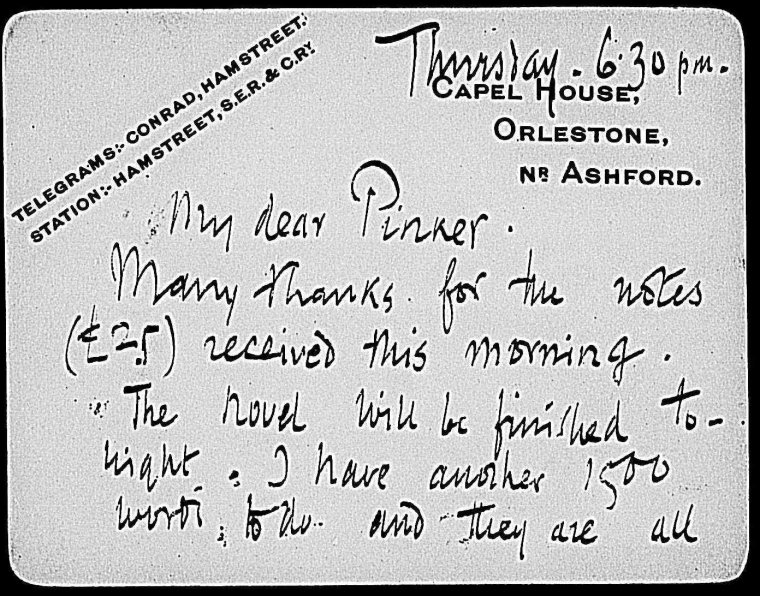 TELEGRAMS:- CONRAD, HAMSTREET.
STATION:- HAMSTREET, S.E.R. & C.RY.
Thursday. 6.30 pm.
CAPEL HOUSE,
ORLESTONE,
NR ASHFORD.
My dear Pinker.
Many thanks for the notes
(£25) received this morning.
The novel will be finished to-
night. I have another 1500
words to do and they are all